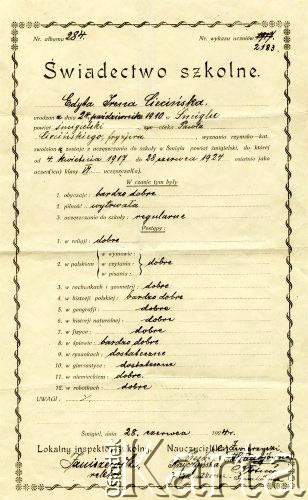 Nr. albumu 284. Nr. wykazu uczniów
2183.
Świadectwo szkolne.
Edyta Irena Ciecińska,
urodzona dnia 2 października 1910 w Śmiglu
powiat śmigielski córka Pawła
Ciecińskiego, fryzjera wyznania rzymsko-kat.
zwolniona zostaje z uczęszczania do szkoły w Śmiglu powiatu śmigielski, do której
od 4. kwietnia 1917 do 28. czerwca 1924. ostatnio jako
uczeń(ica) klasy VI uczęszczał(a).
W czasie tym były
1. obyczaje: bardzo dobre
2. pilność: wytrwała
3. uczęszczanie do szkoły: regularne
Postępy:
1. w religji: dobre
2. w polskiem w wymowie:
w czytaniu: dobre
w pisaniu:
3. w rachunkach i geometrji: dobre
4. w historji polskiej: bardzo dobre
5. w geografji: dobre
6. w historji naturalnej: dobre
7. w fizyce: dobre
8. w śpiewie: bardzo dobre
9. w rysunkach: dostateczne
10. w gimnastyce: dostateczne
11. w niemieckiem: dobre
12. w robótkach: dobre
UWAGI:
Śmigiel, dnia 28. czerwca 1924r.
Lokalny inspektor szkolny: Nauczyciel
rektor
ośrodek
Karta